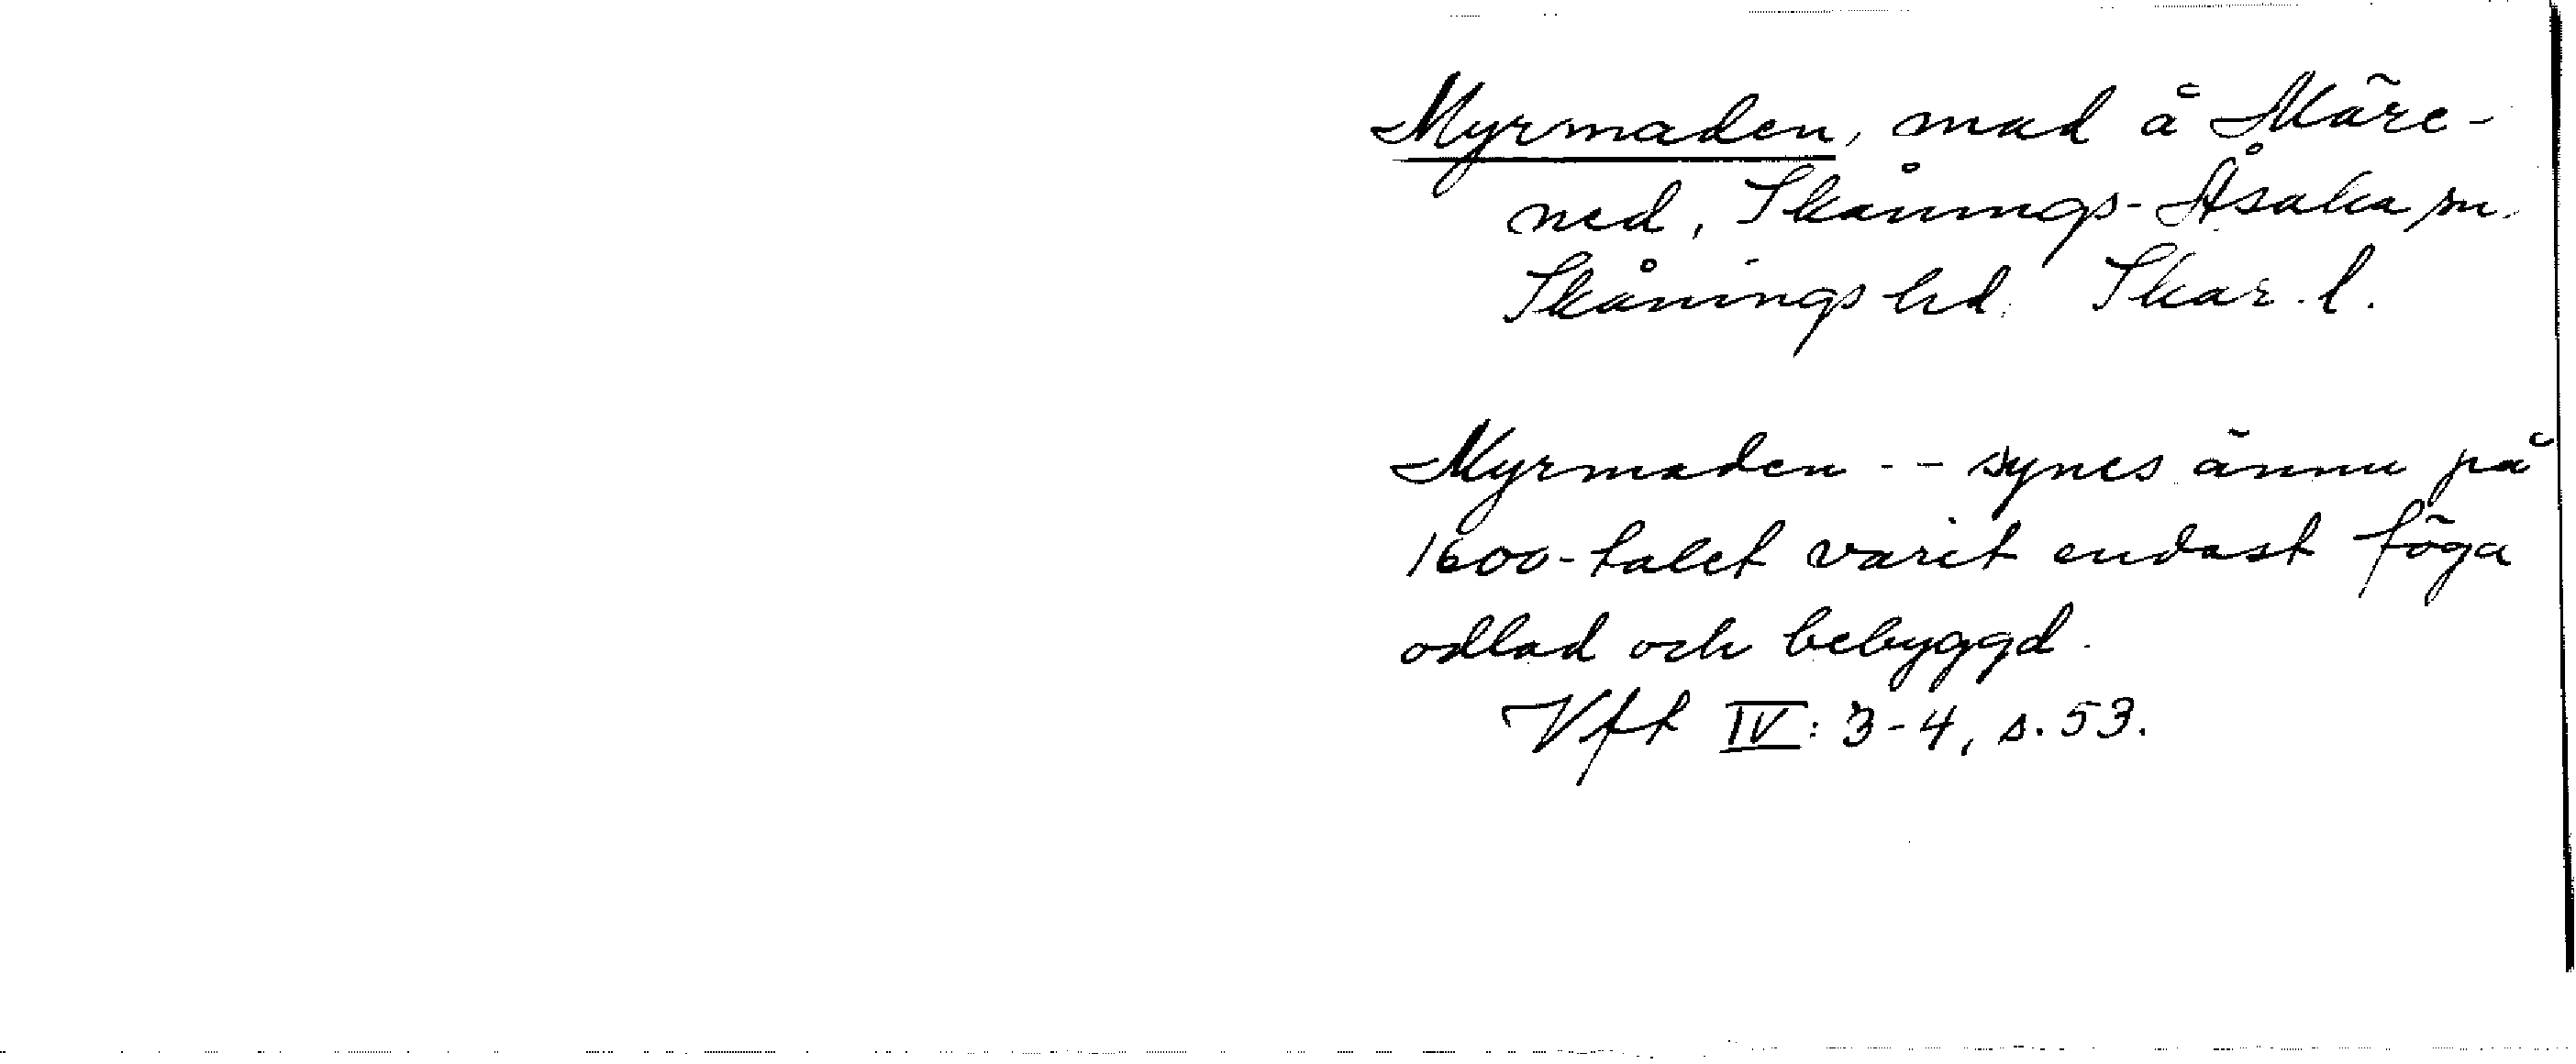 Myrmaden, mad å Märe-
ned, Skånings-Åsaka sn.
Skånings hd. Skar. l.
Myrmaden -- synes ännu på
1600-talet varit endast föga
odlad och bebyggd.
Vft IV: 3-4, s. 53.